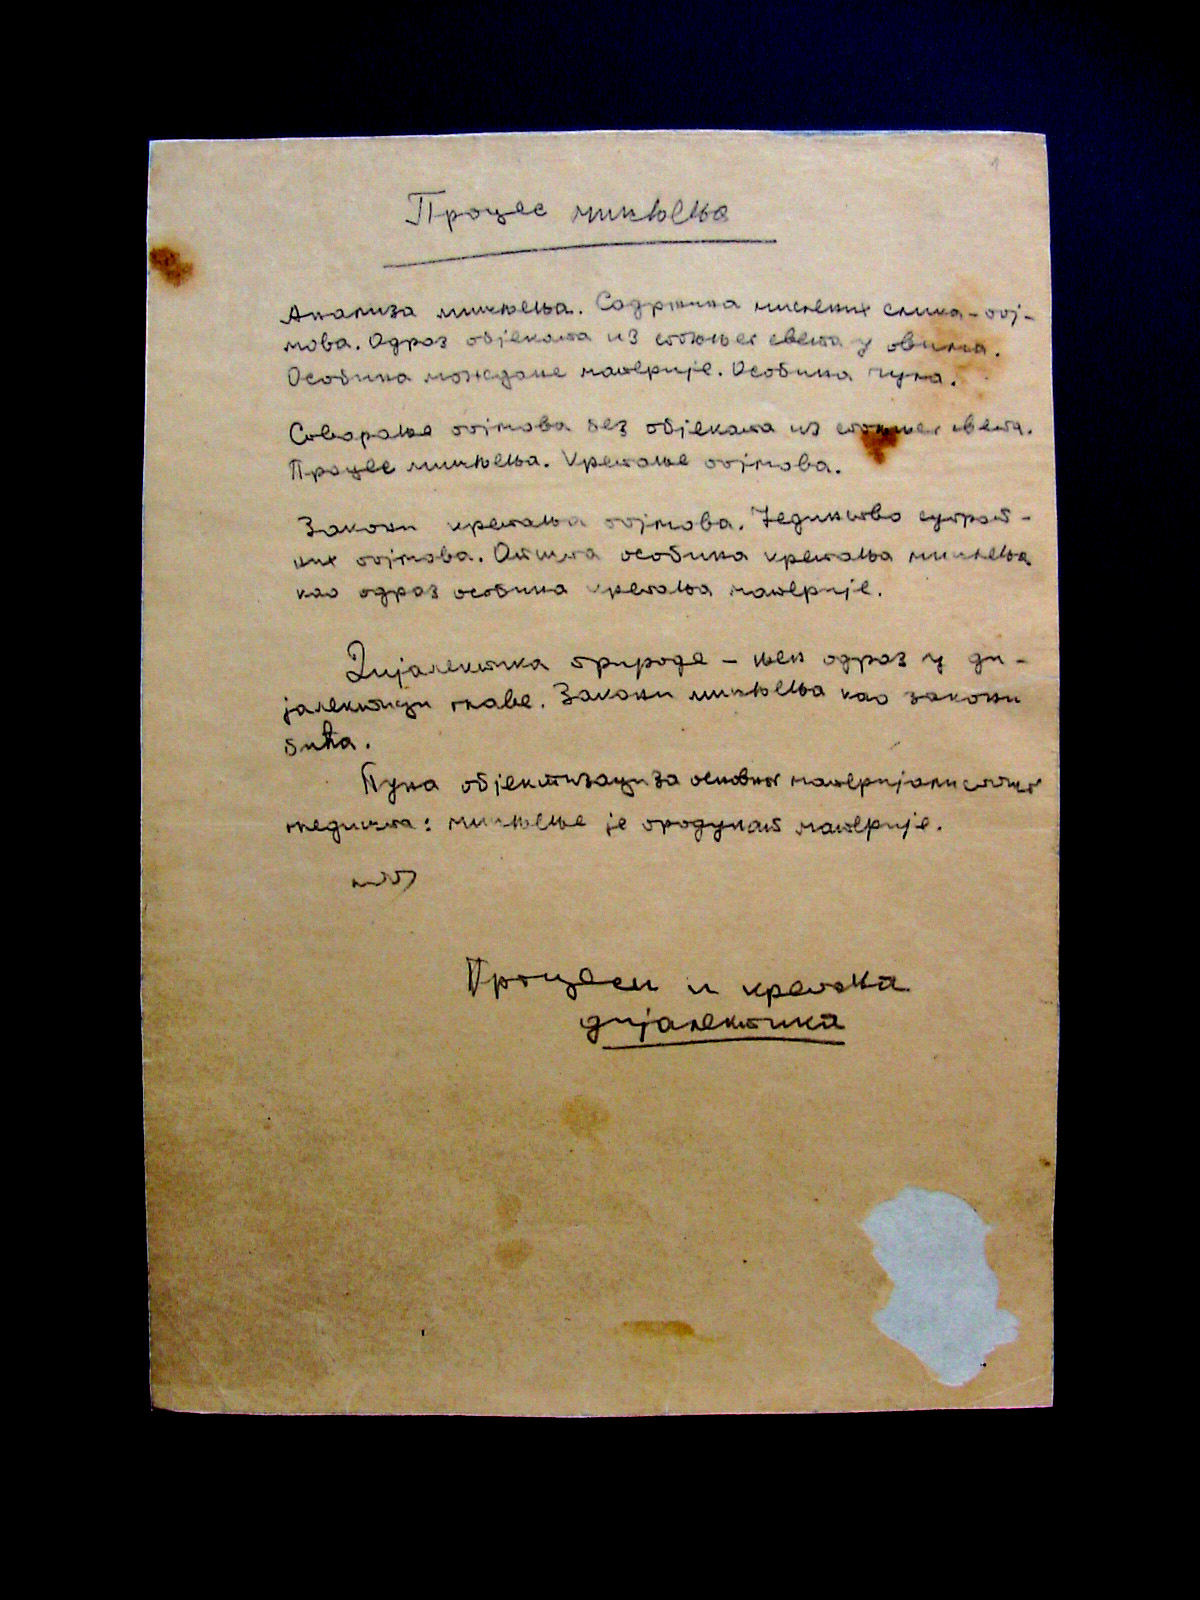 1
Процес мишљења
Анализа мишљења. Садржина мислених слика-пој-
мова. Одраз објеката из спољнег света у овима.
Особина мождане материје. Особина чула.
Стварање појмова без објеката из спољнег света.
Процес мишљења. Кретање појмова.
Закони кретања појмова. Јединство супрот-
них појмова. Општа особина кретања мишљења
као одраз особина кретања материје.
Дијалектика природе - њен одраз у ди-
јалектици главе. Закони мишљења као закони
бића.
Пуна објективизација основног материјалистичког
гледишта: мишљење је продукат материје.
Процеси и кретања
дијалектика